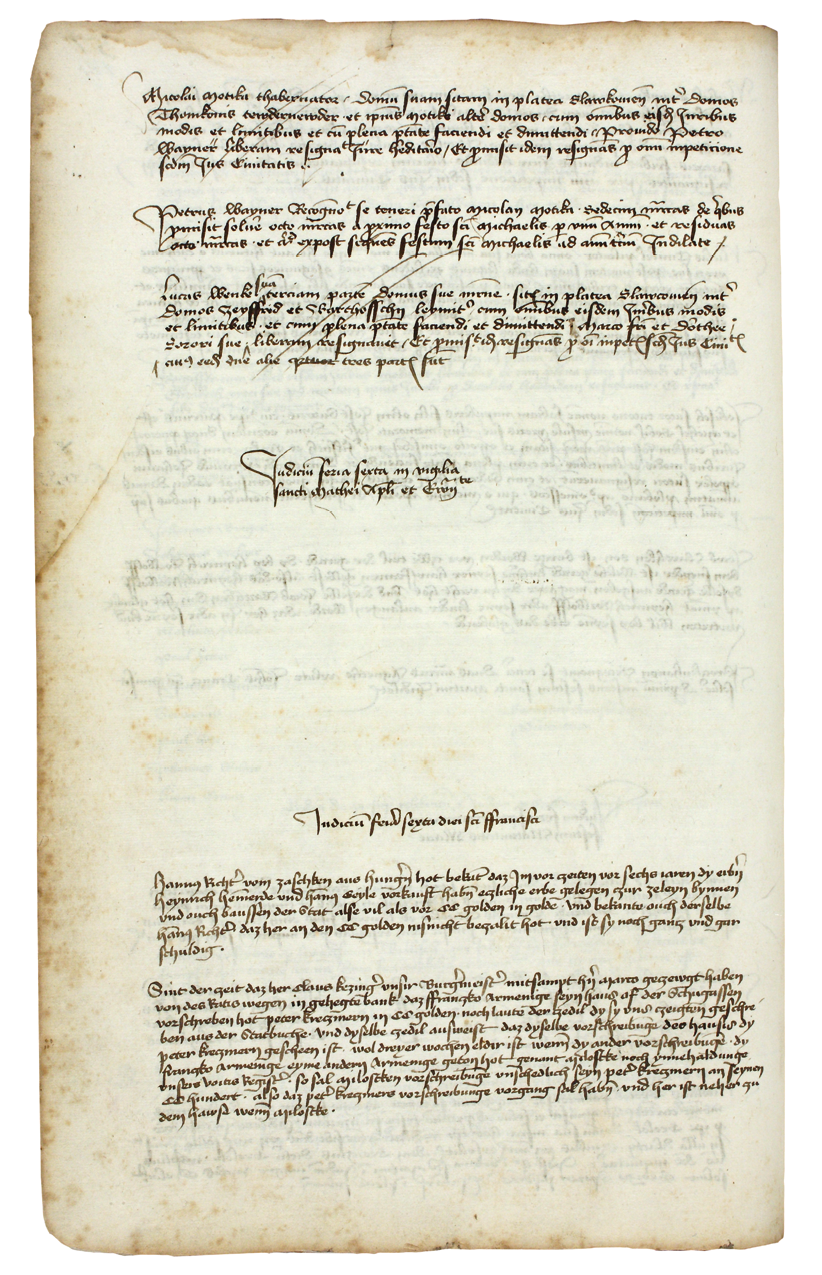 Nicolai Motiku thabernator domum suam sitam in platea Slawkomen int domos
Thomkonis et ipius Motike altera domos cum omnibus eisdem Juribus
modis et limitibus et cu plena ptate faciendi et dimittendi Provido Petro
Wayner liberam resignat Jure heditario Et pmisit idem resignans p omi inpeticione
scdm Jus Civitatis
Petrus Wayner Recognot se teneri pfato Nicolao Motiku Sedecim mrcas de qbus
pmisit solue octo mrcas a primo festo sci Michaelis p vnu Annu et residuas
octo mrcas et expost sequens festum sci Michaelis ad annu Indilate
Lucas Wenke sua terciam parte domus sue sit in platea Slawcomen int
domos Zeyffrid et cum omnibus eisdem Juribus modis
et limitibus et cum plena ptate faciendi et dimittendi Marco fri et Dorothee
Sorori sue liberam resignavit Et pmisit resignans p oi inpet scdm Jus Civit
alie tres part sut
Judiciu feria sexta in vigilia
sancti Mathei Apli et Ewante
Judiciu feria sexta diei sci ffrancisci
Hannus Richter vom zaschken aus Hungern hot bekant daz Im vor czeiten vor sechs iaren dy erbern
Heynrich hemerde vnd hannus Geyle vorkauft haben eczliche erbe gelegen czur zeleyn bynnen
vnd ouch baussen der Stat alse vil als vor CC golden in golde vnd bekante ouch derselbe
hannus Richter daz her an den CC golden nisnicht beczalit hot vnd ist sy noch gancz vnd gar
schuldig
Sint der zeit daz her Claus kezinger vnsir Burgermeister mitsampt hern Marco geczewgt haben
von des Rates wegen in gehegte bank daz ffranczko Armenige seyn haus of der Schugassen
vorschreben hot peter kreczmern in CC golden noch laute der zedil dy sy vns czeigten geschre-
ben aus der Statbuche vnd dyselbe zedil ausweist daz dyselbe vorschreibunge des hausis dy
peter kreczmern gescheen ist wol dreyer wochen eldir ist wenn dy ander vorschreibunge dy
ffranczko Armenige eyme andern Armenige geton hot genant Milostke noch ynnehaldunge
vnsers voits Register so sal Milostken vorschreibunge vnschedlich seyn peter kreczmern an seynen
CC hundert also daz peter kreczmers vorschreibunge vorgang sal haben vnd her ist neher zu
dem hawse wenn Milostke